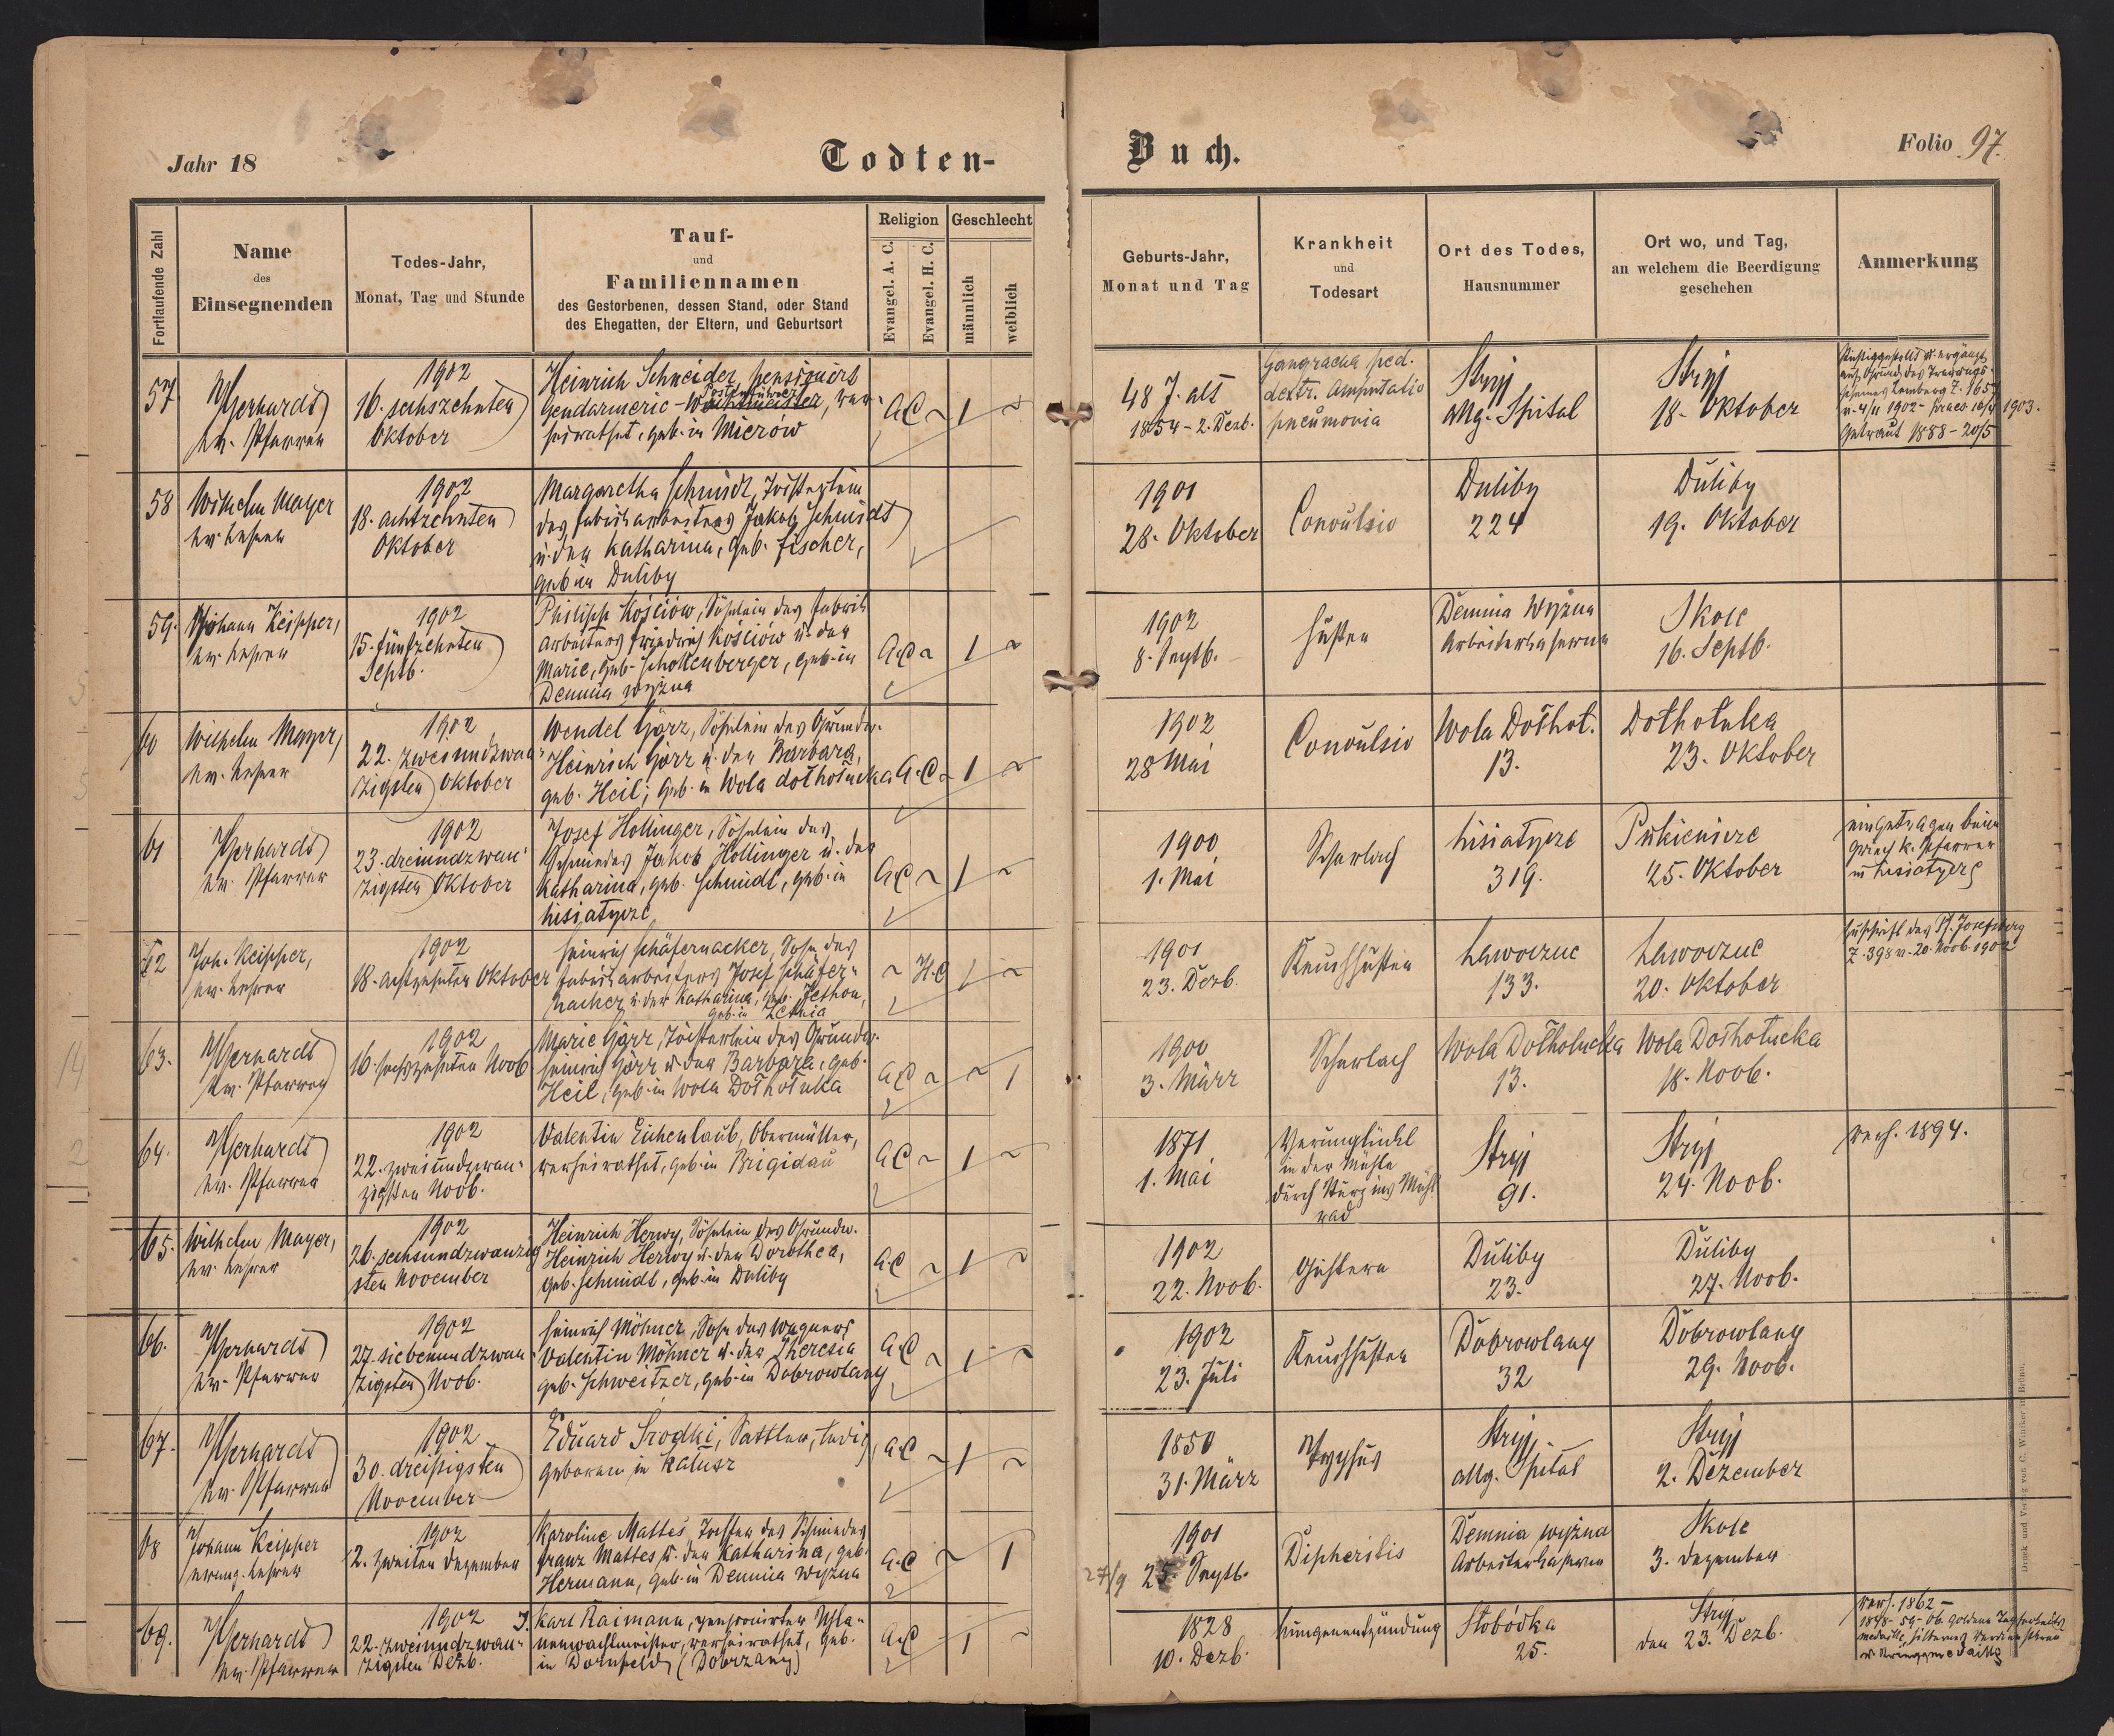 Jahr 18
Todten-
Buch.
Folio 97.
Fortlaufende Zahl
Name
des
Einsegnenden
Todes-Jahr,
Monat, Tag und Stunde
Tauf-
und
Familiennamen
des Gestorbenen, dessen Stand, oder Stand
des Ehegatten, der Eltern, und Geburtsort
Religion
Evangel. A. C.
Evangel. H. C.
Geschlecht
männlich
weiblich
Geburts-Jahr,
Monat und Tag
Krankheit
und
Todesart
Ort des Todes,
Hausnummer
Ort wo, und Tag,
an welchem die Beerdigung
geschehen
Anmerkung
57
Gerhardt
ev. Pfarrer
1902
16. sechszehnten
Oktober
Heinrich Schneider, pensioniert
Gendarmerie-
geb. in Mierow
A.C. ~ 1 ~
48 J. alt
1854 - 2. Dezb.
Gangraena ped.
dextr. Amputatio
pneumonia
Stryj
allg. Spital
Stryj
18. Oktober
1903.
Getraut 1888 - 20/5
58
Wilhelm Mayer
ev. Lehrer
1902
18. achtzehnten
Oktober
Margaretha Schmidt, Töchterlein
des Fabriksarbeiters Jakob Schmidt
u. der Katharina, geb. Fischer,
geb. in Duliby
1901
28. Oktober
Convulsio
Duliby
224
Duliby
19. Oktober
59.
Johann Keipper,
ev. Lehrer
1902
15. fünfzehnten
Septb.
Philipp Kościów, Söhnlein des Fabriks
arbeiters Friedrich Kościów u. der
Marie, geb. Schollenberger, geb. in
Demnia wyżna
A.C. ~ 1 ~
1902
8. Septb.
Husten
Demnia Wyżna
Arbeiterkaserne
Skole
16. Septb.
60
Wilhelm Mayer,
ev. Lehrer
1902
22. zweiundzwan-
zigsten Oktober
Wendel Görz, Söhnlein des Grundw.
Heinrich Görz u. der Barbara,
geb. Heil; geb. in Wola dołhołucka
A.C. ~ 1 ~
1902
28 Mai
Convulsio
Wola Dołhoł.
13.
Dołhołuka
23. Oktober
61
Gerhardt
ev. Pfarrer
1902
23. dreiundzwan-
zigsten Oktober
Josef Hollinger, Söhnlein des
Schmiedes Jakob Hollinger u. der
Katharina, geb. Schmidt, geb. in
Lisiatycze
A.C. ~ 1 ~
1900
1. Mai
Scharlach
Lisiatycze
319.
Pukienicze
25. Oktober
eingetragen beim
griech. k. Pfarrer
in Lisiatycze
62
Joh. Keipper,
ev. Lehrer
1902
18. achtzehnten Oktober
Heinrich Schäfernacker, Sohn des
Fabriksarbeiters Josef Schäfer-
nacker u. der Katharina, geb. Jethon,
~ H.C. 1 ~
1901
23. Dezb.
Keuchhusten
Ławoczne
133.
Ławoczne
20. Oktober
Zuschrift des Pf. Josefsberg
Z. 398 v. 20. Novb. 1902
63.
Gerhardt
ev. Pfarrer
1902
16. sechszehnten Novb
Marie Görz, Töchterlein des Grundw.
Heinrich Görz u. der Barbara, geb.
Heil, geb. in Wola Dołhołuka
A.C. ~ ~ 1
1900
3. März
Scharlach
Wola Dołhołucka
13.
Wola Dołhołucka
18. Novb.
64.
Gerhardt
ev. Pfarrer
1902
22. zweiundzwan-
zigsten Novb.
Valentin Eichenlaub, Obermüller,
verheirathet, geb. in Brigidau
A.C. ~ 1 ~
1871
1. Mai
Verunglückt
in der Mühle
durch Sturz ins Mühl
rad
Stryj
91.
Stryj
24. Novb.
verh. 1894.
65.
Wilhelm Mayer,
ev. Lehrer
1902
26. sechsundzwanzig
sten November
Heinrich Herwy, Söhnlein des Grundw.
Heinrich Herwy u. der Dorothea,
geb. Schmidt, geb. in Duliby
A.C. ~ 1 ~
1902
22. Novb.
Gichtern
Duliby
23.
Duliby
27. Novb.
66.
Gerhardt
ev. Pfarrer
1902
27. siebenundzwan
zigsten Novb.
Heinrich Möhner, Sohn des Wagners
Valentin Möhner u. der Theresia
geb. Schweitzer, geb. in Dobrowlany
A.C. ~ 1 ~
1902
23. Juli
Keuchhusten
Dobrowlany
32
Dobrowlany
29. Novb.
67.
Gerhardt
ev. Pfarrer
1902
30. dreißigsten
November
Eduard Srodki, Sattler, ledig,
geboren in Kałusz
A.C. ~ 1 ~
1850
31. März
Typhus
Stryj,
allg. Spital
Stryj
2. Dezember
68
Johann Keipper
evang. Lehrer
1902
2. zweiten Dezember
Karoline Mattes, Tochter des Schmiedes
Franz Mattes u. der Katharina, geb.
Hermann, geb. in Demnia wyżna
A.C. ~ 1
1901
27/9 25. Septb.
Dipheritis
Demnia wyżna
Arbeiterkaserne
Skole
3. Dezember
69.
Gerhardt
ev. Pfarrer
1902
22. zweiundzwan-
zigsten Dezb.
J. Karl Raimann, pensionirter Uhla-
nenwachtmeister, verheirathet, geb.
in Dornfeld (Dobrzany)
A.C. 1 ~
1828
10. Dezb.
Lungenentzündung
Słobódka
25.
Stryj
den 23. Dezb.
verh. 1862 -
Druck und Verlag von C. Winiker in Brünn.